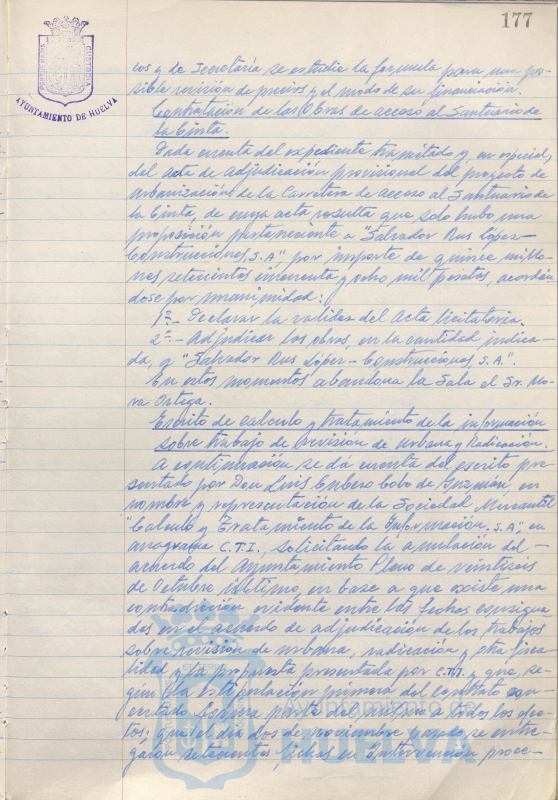 177
PORTUS MARIS CUSTODIA
AYUNTAMIENTO DE HUELVA
cos y de Secretaría se estudie la fórmula para una po-
sible revisión de precios y el modo de su financiación.
Contratación de las Obras de acceso al Santuario de
la Cinta.
Dada cuenta del expediente tramitado y, en especial,
del acta de adjudicación provisional del proyecto de
urbanización de la Carretera de acceso al Santuario de
la Cinta, de cuya acta resulta que solo hubo una
proposición perteneciente a "Salvador Rus López-
Construcciones, S.A." por importe de quince millo-
nes setecientas cincuenta y ocho mil pesetas, acordán
dose por unanimidad:
1º.- Declarar la validez del acta licitatoria.
2º.- Adjudicar las obras, en la cantidad indica-
da, a "Salvador Rus López - Construcciones, S.A.".
En estos momentos abandona la Sala el Sr. Mo-
ra Ortega.
Escrito de cálculo y tratamiento de la información
sobre trabajo de revisión de urbana y radicación.
A continuación se dá cuenta del escrito pre
sentado por Don Luis Cubero Cobo de Guzmán, en
nombre y representación de la Sociedad Mercantil
"Cálculo y Tratamiento de la Información, S.A." en
anagrama C.T.I., solicitando la anulación del -
acuerdo del Ayuntamiento Pleno de veintiseis
de Octubre último, en base a que existe una
contradicción evidente entre las fechas consigna
das en el acuerdo de adjudicación de los trabajos
sobre revisión de urbana, radicación y otra fisca-
lidad y la propuesta presentada por C.T.I. y que, se-
gún la estipulación primera del contrato con-
certado forma parte del mismo a todos los efec-
tos; que el día dos de noviembre pasado se entre-
garon setecientas fichas en Intervención proce-
Ayuntamiento de
HUELVA